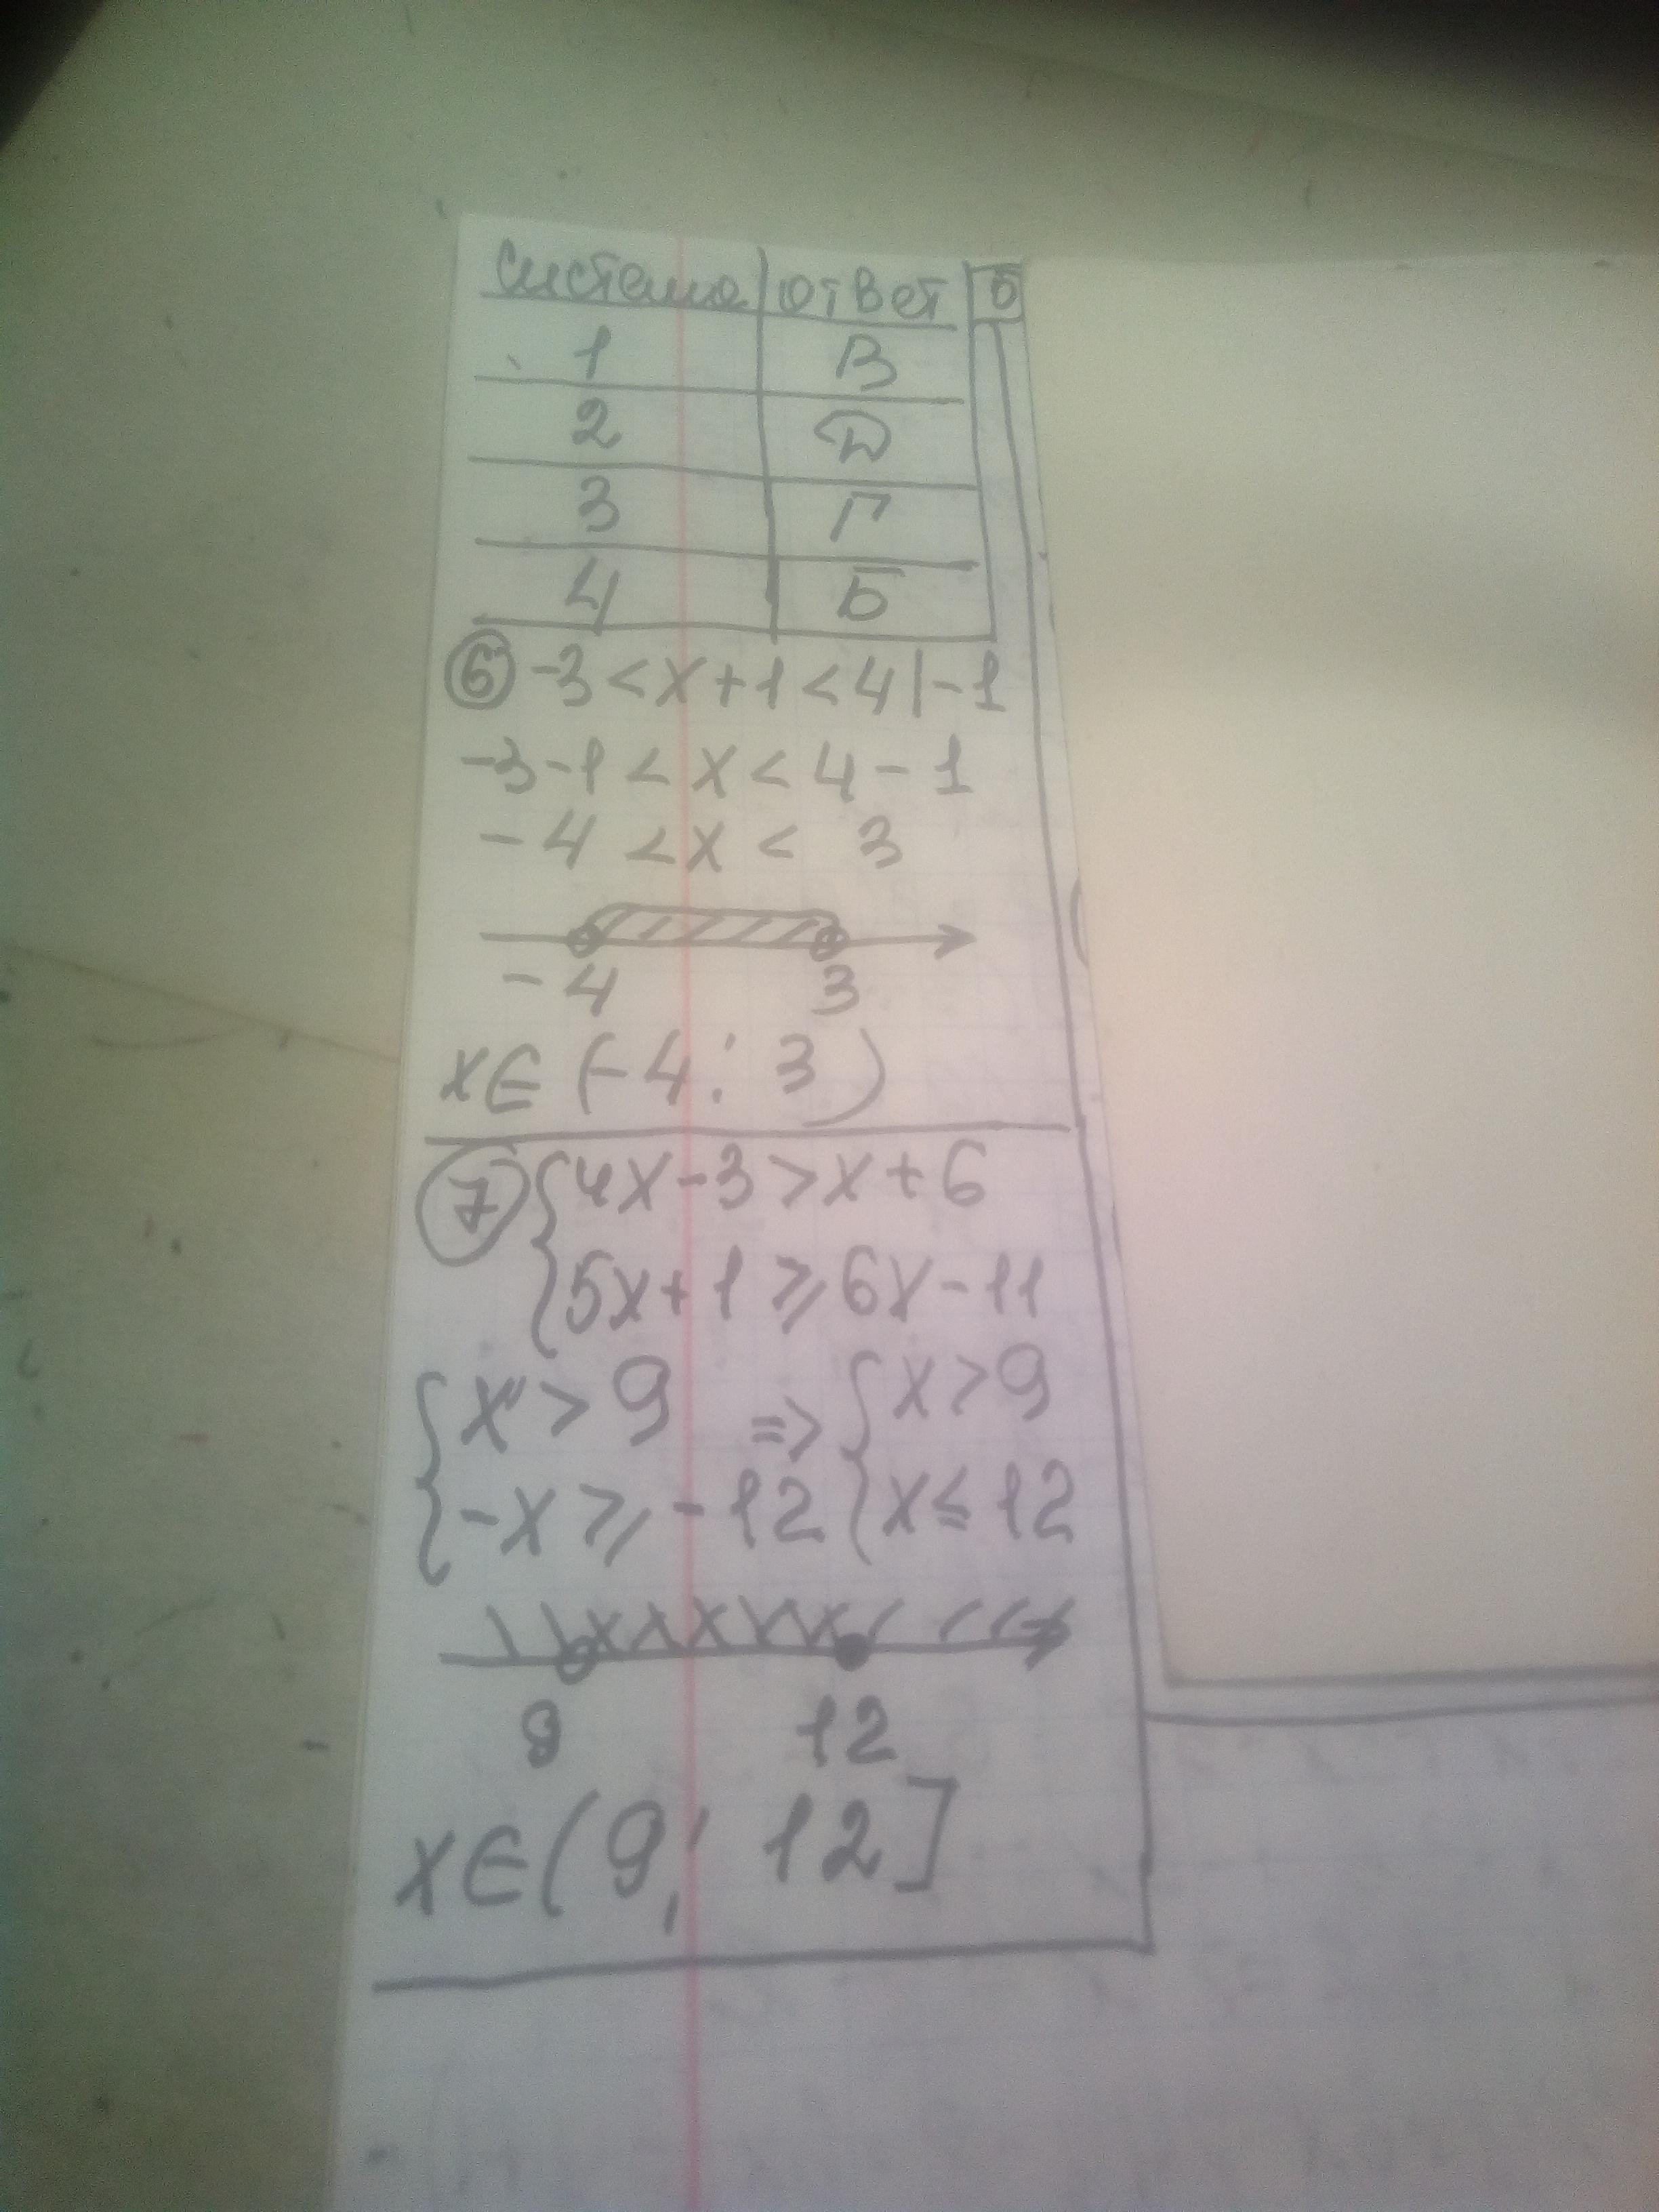 система ответ 5
1 В
2 Д
3 Г
4 Б
6 -3<x+1<4|-1
-3-1<x<4-1
-4<x<3
-4 3
x∈(-4;3)
7 {4x-3>x+6
5x+1⩾6x-11
{x>9 => {x>9
-x⩾-12 x≤12
9 12
x∈(9;12]